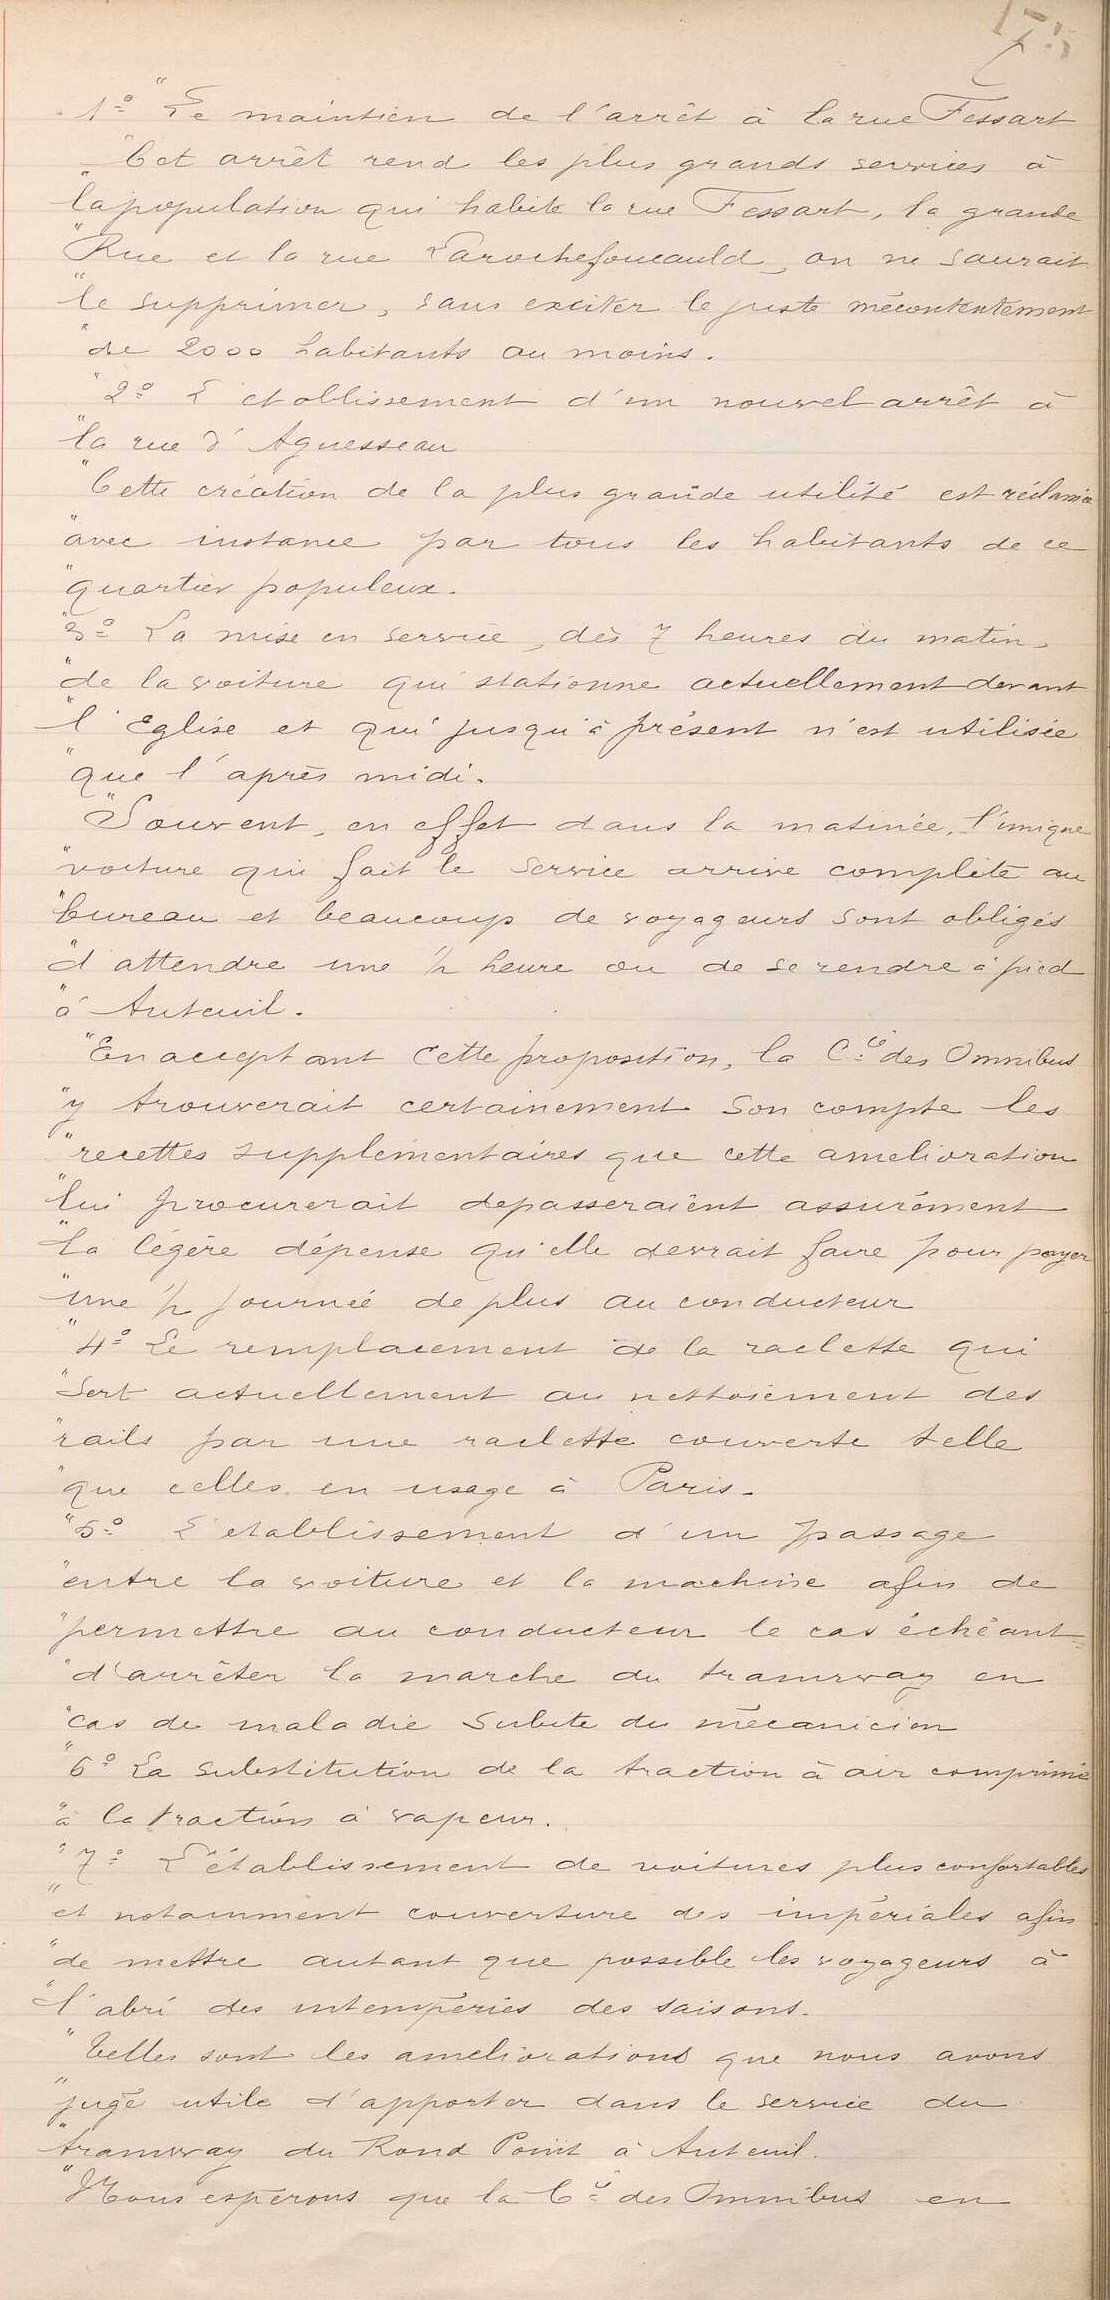 175
1º "Le maintien de l'arrêt à la rue Fessart
"Cet arrêt rend les plus grands services à
"la population qui habite la rue Fessart, la grande
"Rue et la rue Larochefoucauld, on ne saurait
"le supprimer, sans exciter le juste mécontentement
"de 2000 habitants au moins.
"2º L'etablissement d'un nouvel arrêt à
"la rue d'Aguesseau
"Cette création de la plus grande utilité est réclamée
"avec instance par tous les habitants de ce
"quartier populeux.
"3º La mise en service, dès 7 heures du matin,
"de la voiture qui stationne actuellement devant
"l'Eglise et qui jusqu'à présent n'est utilisée
"que l'après midi.
"Souvent, en effet dans la matinée, l'unique
"voiture qui fait le service arrive complète au
"bureau et beaucoup de voyageurs sont obligés
"d'attendre une ½ heure ou de se rendre à pied
"à Auteuil.
"En acceptant cette proposition, la Cie des Omnibus
"y trouverait certainement son compte les
"recettes supplémentaires que cette amelioration
"lui procurerait depasseraient assurément
"la légère dépense qu'elle devrait faire pour payer
"une ½ journée de plus au conducteur
"4º Le remplacement de la raclette qui
"sert actuellement au nettoiement des
"rails par une raclette couverte telle
"que celles en usage à Paris.
"5º L'etablissement d'un passage
"entre la voiture et la machine afin de
"permettre au conducteur le cas échéant
"d'arrêter la marche du tramway en
"cas de maladie subite du mécanicien
"6º La substitution de la traction à air comprimé
"à la traction à vapeur.
"7º L'établissement de voitures plus confortables
"et notamment couverture des impériales afin
"de mettre autant que possible les voyageurs à
"l'abri des intempéries des saisons.
"Telles sont les ameliorations que nous avons
"jugé utile d'apporter dans le service du
"tramway du Rond Point à Auteuil.
"Nous espérons que la Cie des Omnibus en